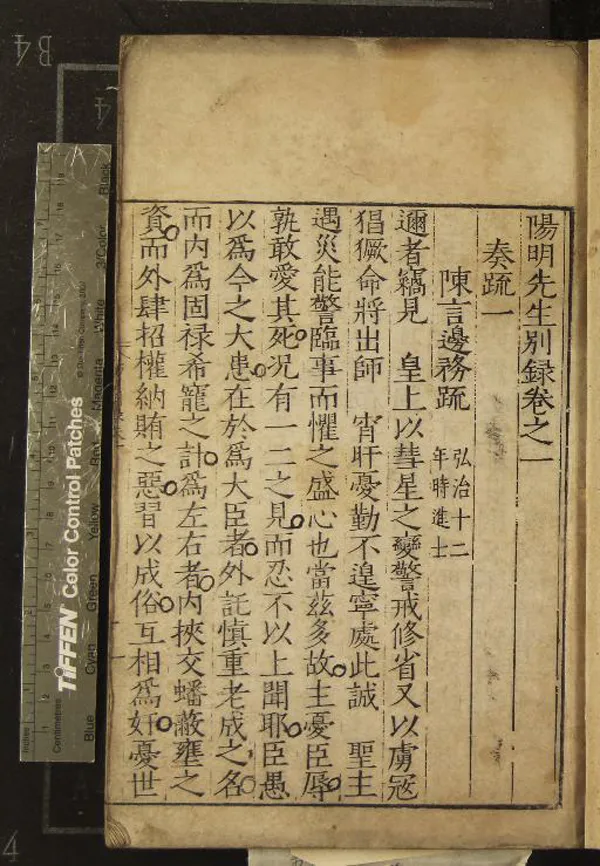 陽明先生別録卷之一
奏疏一
陳言邊務疏 弘治十二年時進士
邇者竊見 皇上以彗星之變警戒修省又以虜寇
猖獗命將出師 宵旰憂勤不遑寧處此誠 聖主
遇災能警臨事而懼之盛心也當茲多故主憂臣辱
孰敢愛其死況有一二之見而忍不以上聞耶臣愚
以爲今之大患在於爲大臣者外託慎重老成之名
而内爲固禄希寵之計爲左右者内挾交蟠蔽壅之
資而外肆招權納賄之惡習以成俗互相爲奸憂世
B4
4
4
TIFFEN Color Control Patches
© The Tiffen Company, 2007
Inches
Centimetres
Blue
Cyan
Green
Yellow
Red
Magenta
White
3/Color
Black